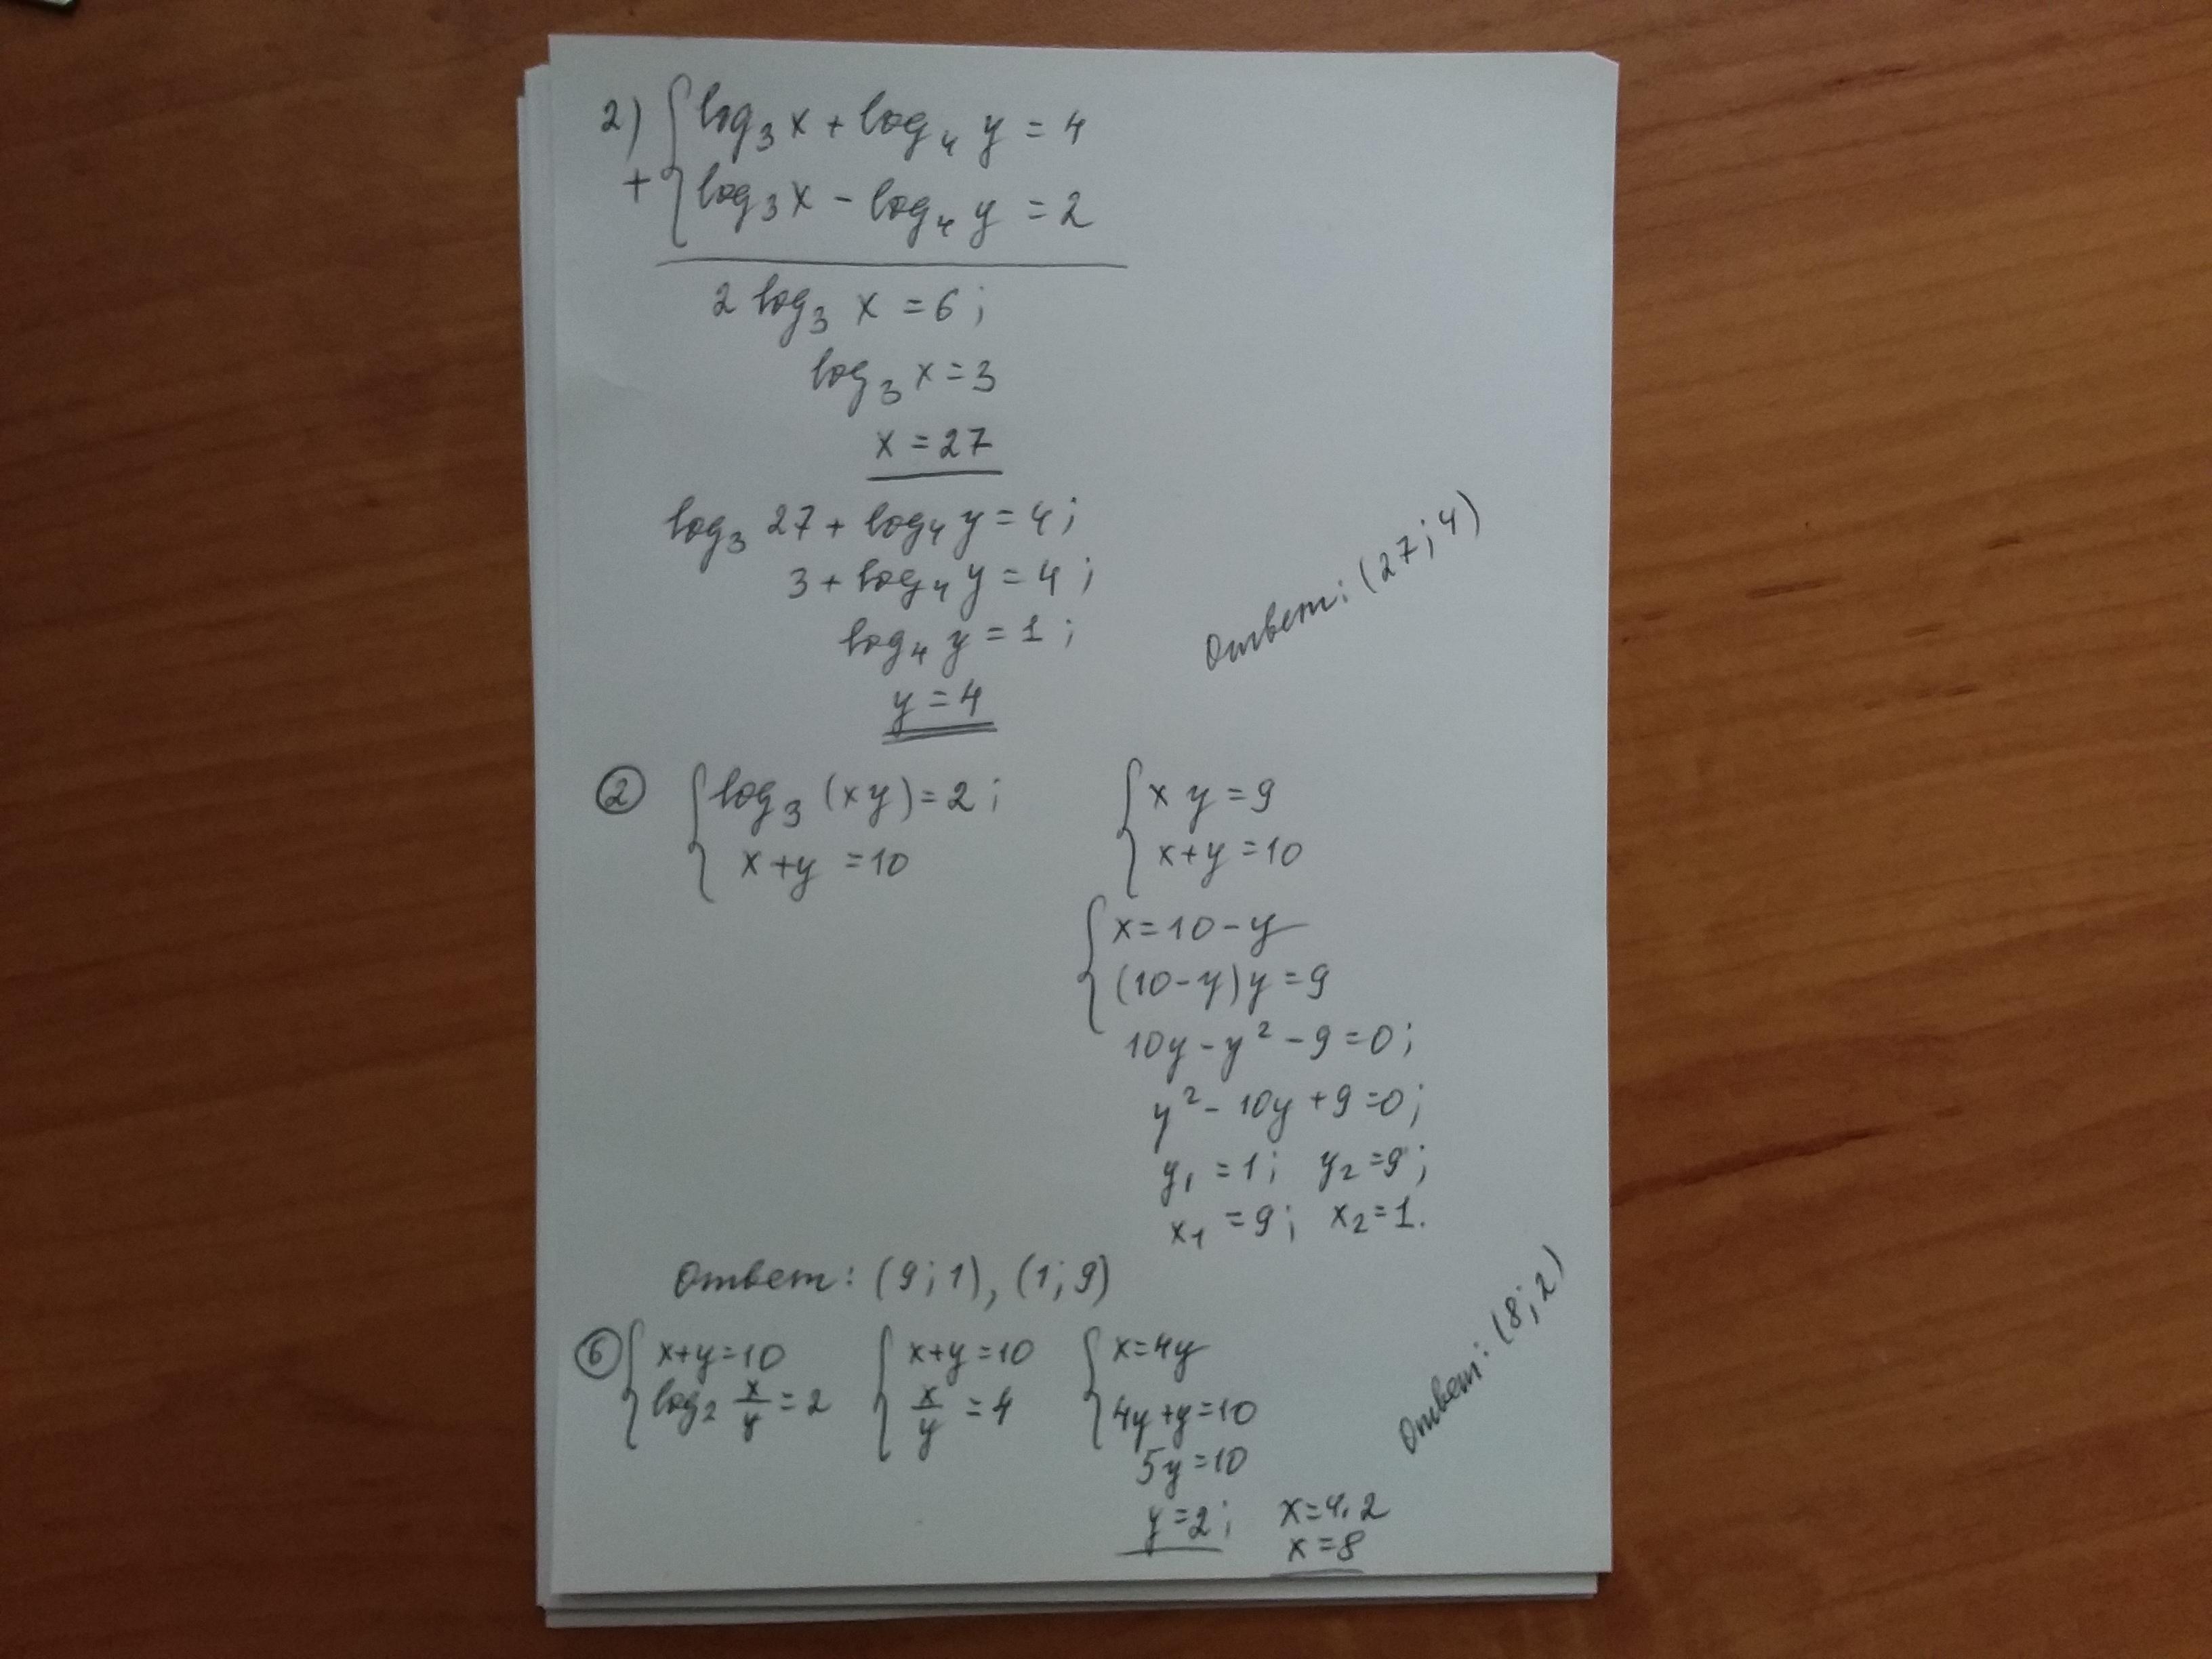 2) { log₃ x + log₄ y = 4
+ { log₃ x - log₄ y = 2
2 log₃ x = 6;
log₃ x = 3
x = 27
log₃ 27 + log₄ y = 4;
3 + log₄ y = 4;
log₄ y = 1;
y = 4
Ответ: (27; 4)
② { log₃ (xy) = 2;
x + y = 10
{ x y = 9
x + y = 10
{ x = 10 - y
(10 - y) y = 9
10y - y² - 9 = 0;
y² - 10y + 9 = 0;
y₁ = 1; y₂ = 9;
x₁ = 9; x₂ = 1.
Ответ: (9; 1), (1; 9)
⑥ { x + y = 10
log₂ x/y = 2
{ x + y = 10
x/y = 4
{ x = 4y
4y + y = 10
5y = 10
y = 2; x = 4·2
x = 8
Ответ: (8; 2)